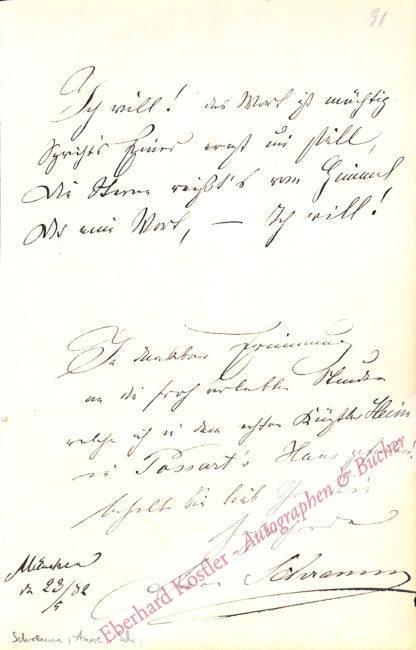 91
Ich will! das Wort ist mächtig
Spricht's Einer ernst und still,
Die Sterne reißt's vom Himmel
Das eine Wort, — Ich will!
In dankbarer Erinnerung
an die froh verlebten Stunden
welche ich in dem echten Künstler Heim
in Possart's Haus
behalte Sie lieb
Schramm
München
den 23/82
5
Schramm, Anna
Eberhard Köstler - Autographen & Bücher